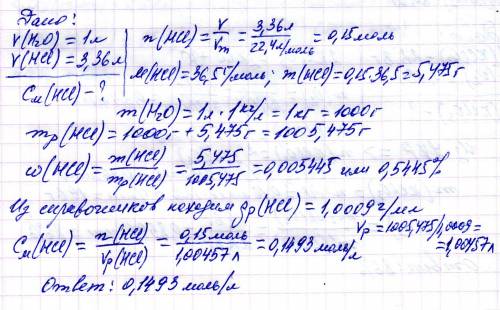 Дано:
V(H₂O) = 1л
V(HCl) = 3,36л
Cм(HCl) - ?
n(HCl) = V/Vm = 3,36л/22,4л/моль = 0,15моль
M(HCl) = 36,5г/моль; m(HCl) = 0,15·36,5 = 5,475г
m(H₂O) = 1л · 1кг/л = 1кг = 1000г
mp(HCl) = 1000г + 5,475г = 1005,475г
ω(HCl) = m(HCl)/mp(HCl) = 5,475/1005,475 = 0,005445 или 0,5445%
Из справочников находим ρp(HCl) = 1,0009г/мл
Vp = 1005,475/1,0009 =
= 1,00457л
Cм(HCl) = n(HCl)/Vp(HCl) = 0,15моль/1,00457л = 0,1493моль/л
Ответ: 0,1493 моль/л